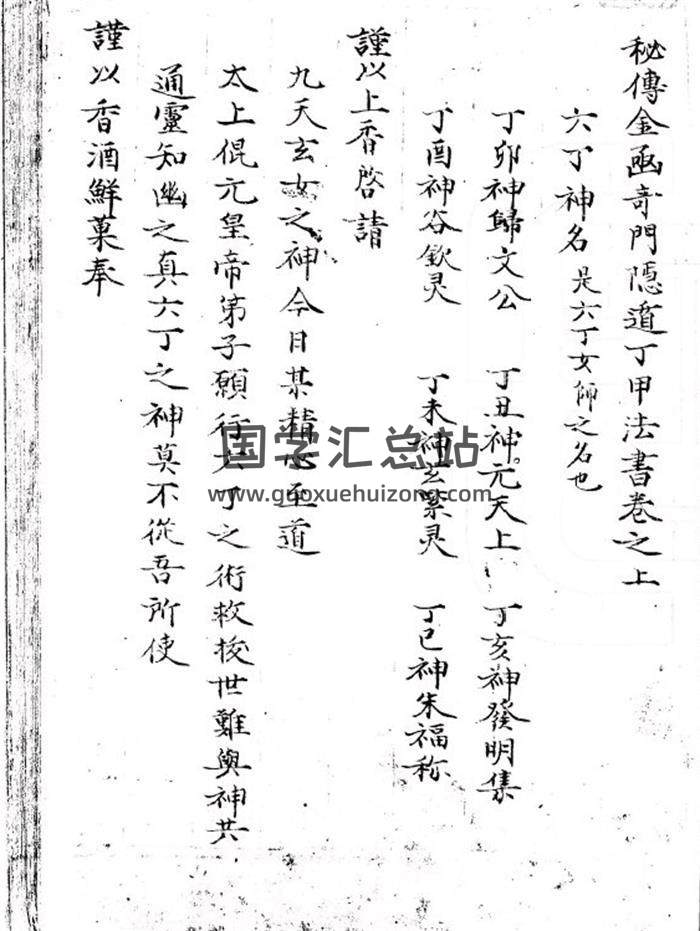 秘傳金函奇門隱遁丁甲法書卷之上
六丁神名 是六丁女師之名也
丁卯神歸文公 丁丑神元天上 丁亥神發明集
丁酉神谷欽灵 丁未神玄 灵 丁巳神朱福称
謹以上香啓請
九天玄女之神今日某精心至道
太上混元皇帝弟子願行六丁之術救援世難與神共
通靈知幽之真六丁之神莫不從吾所使
謹以香酒鮮菓奉
国学汇总站
www.guoxuehuizong.com